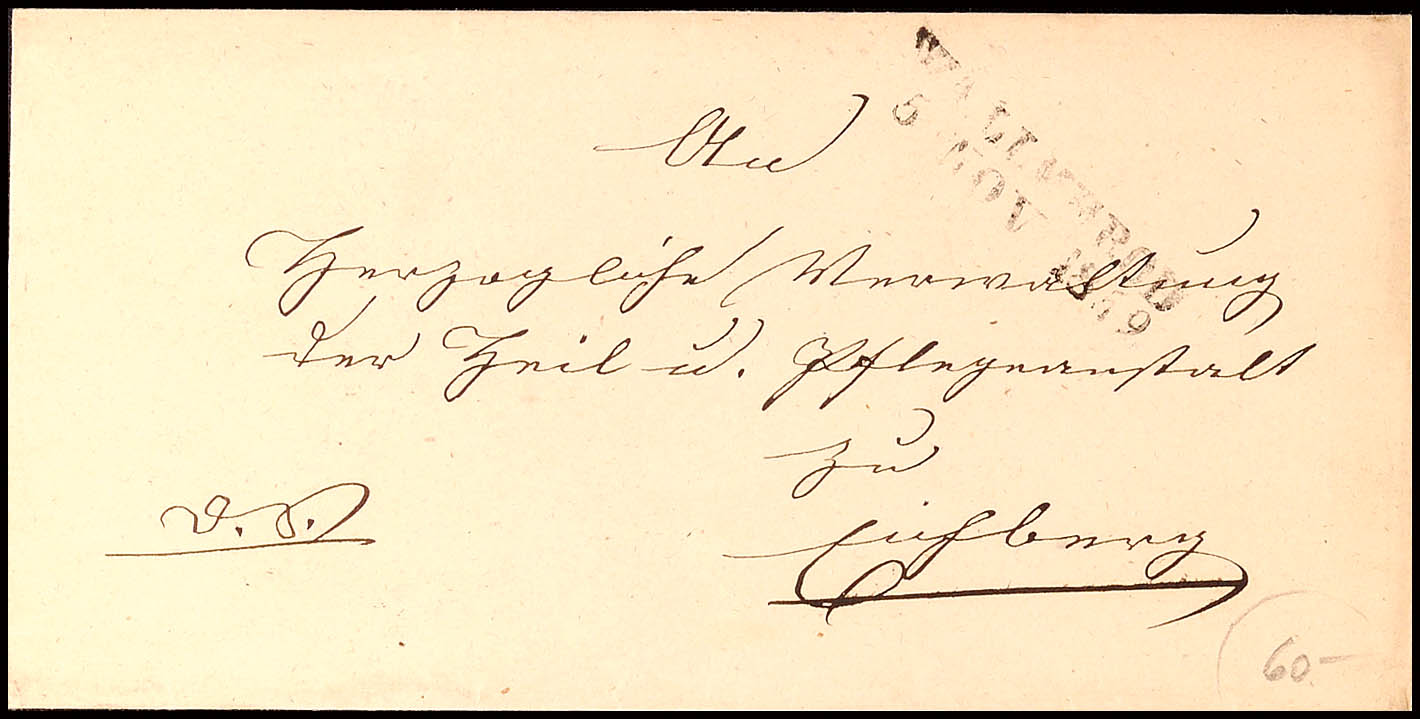 WALLMEROD
5 NOV 1859
An
Herzogliche Verwaltung
der Heil u. Pflegeanstalt
zu
Eichberg
D. S.
60-